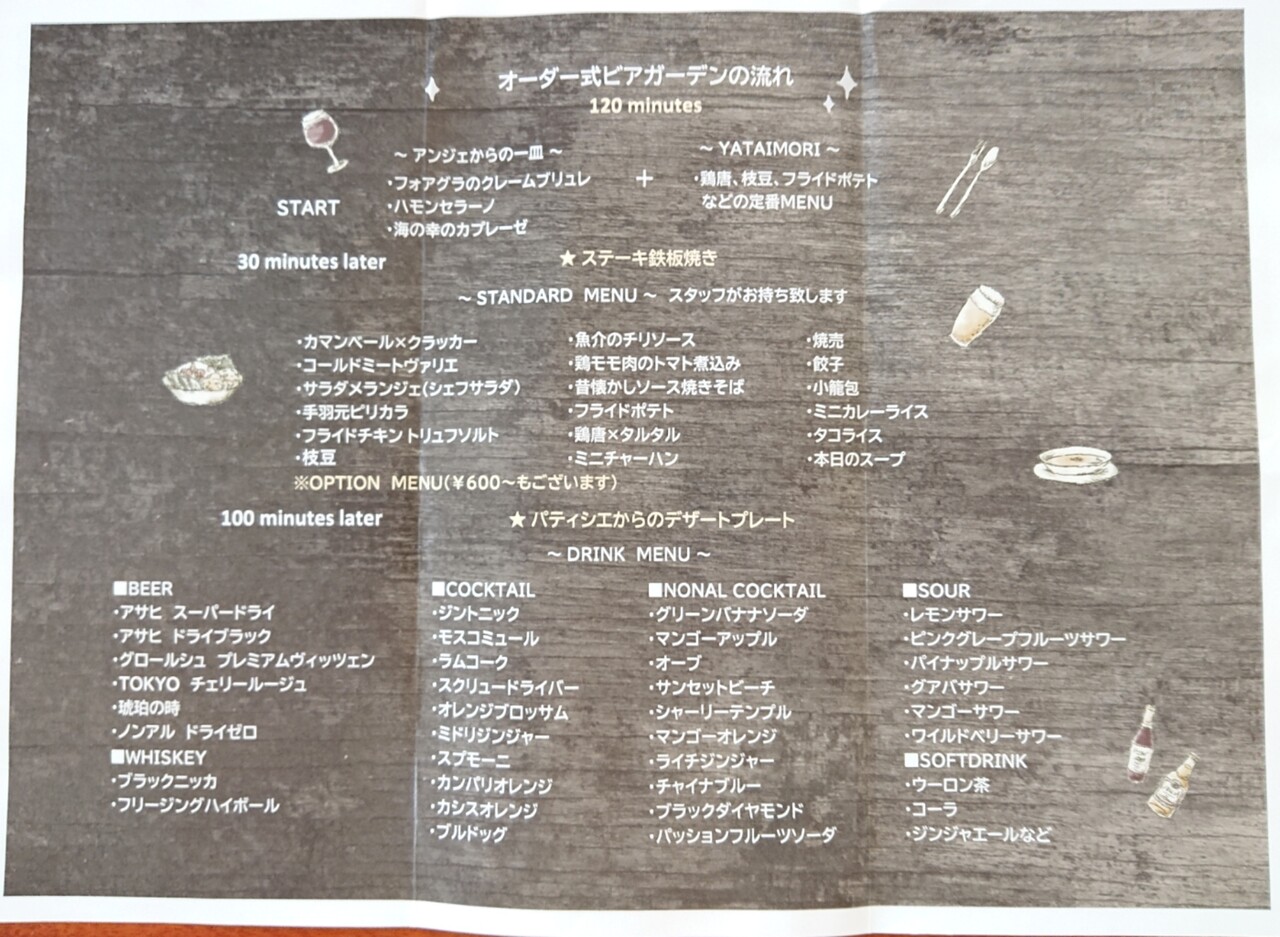 オーダー式ビアガーデンの流れ
120 minutes
～ アンジェからの一皿 ～
・フォアグラのクレームブリュレ
・ハモンセラーノ
・海の幸のカプレーゼ
＋
～ YATAIMORI ～
・鶏唐、枝豆、フライドポテト
などの定番MENU
START
30 minutes later
★ ステーキ鉄板焼き
～ STANDARD MENU ～ スタッフがお持ち致します
・カマンベール×クラッカー
・コールドミートヴァリエ
・サラダメランジェ(シェフサラダ)
・手羽元ピリカラ
・フライドチキン トリュフソルト
・枝豆
・魚介のチリソース
・鶏モモ肉のトマト煮込み
・昔懐かしソース焼きそば
・フライドポテト
・鶏唐×タルタル
・ミニチャーハン
・焼売
・餃子
・小籠包
・ミニカレーライス
・タコライス
・本日のスープ
※OPTION MENU(￥600～もございます)
100 minutes later
★ パティシエからのデザートプレート
～ DRINK MENU ～
■BEER
・アサヒ スーパードライ
・アサヒ ドライブラック
・グロールシュ プレミアムヴィッツェン
・TOKYO チェリールージュ
・琥珀の時
・ノンアル ドライゼロ
■WHISKEY
・ブラックニッカ
・フリージングハイボール
■COCKTAIL
・ジントニック
・モスコミュール
・ラムコーク
・スクリュードライバー
・オレンジブロッサム
・ミドリジンジャー
・スプモーニ
・カンパリオレンジ
・カシスオレンジ
・ブルドッグ
■NONAL COCKTAIL
・グリーンバナナソーダ
・マンゴーアップル
・オーブ
・サンセットビーチ
・シャーリーテンプル
・マンゴーオレンジ
・ライチジンジャー
・チャイナブルー
・ブラックダイヤモンド
・パッションフルーツソーダ
■SOUR
・レモンサワー
・ピンクグレープフルーツサワー
・パイナップルサワー
・グアバサワー
・マンゴーサワー
・ワイルドベリーサワー
■SOFTDRINK
・ウーロン茶
・コーラ
・ジンジャエールなど